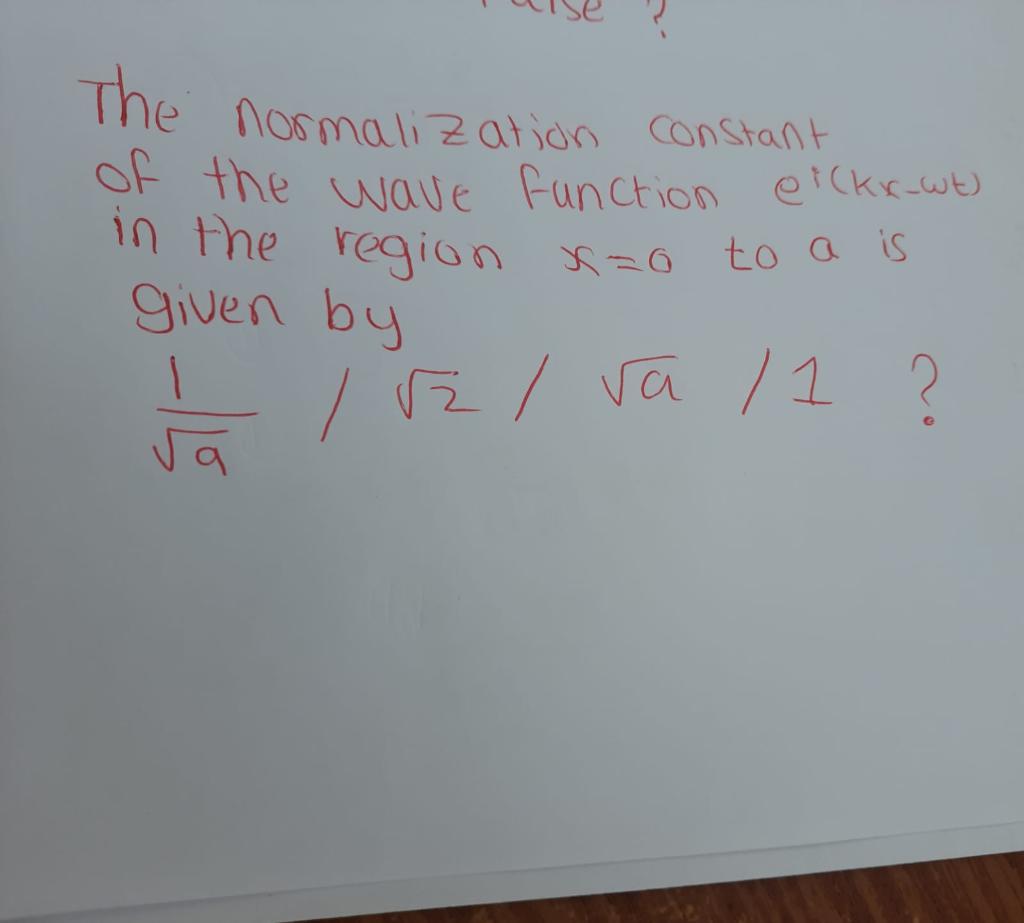 ?
The normalization constant
of the wave function e^i(kx-wt)
in the region x=0 to a is
given by
1/√a / √2 / √a / 1 ?